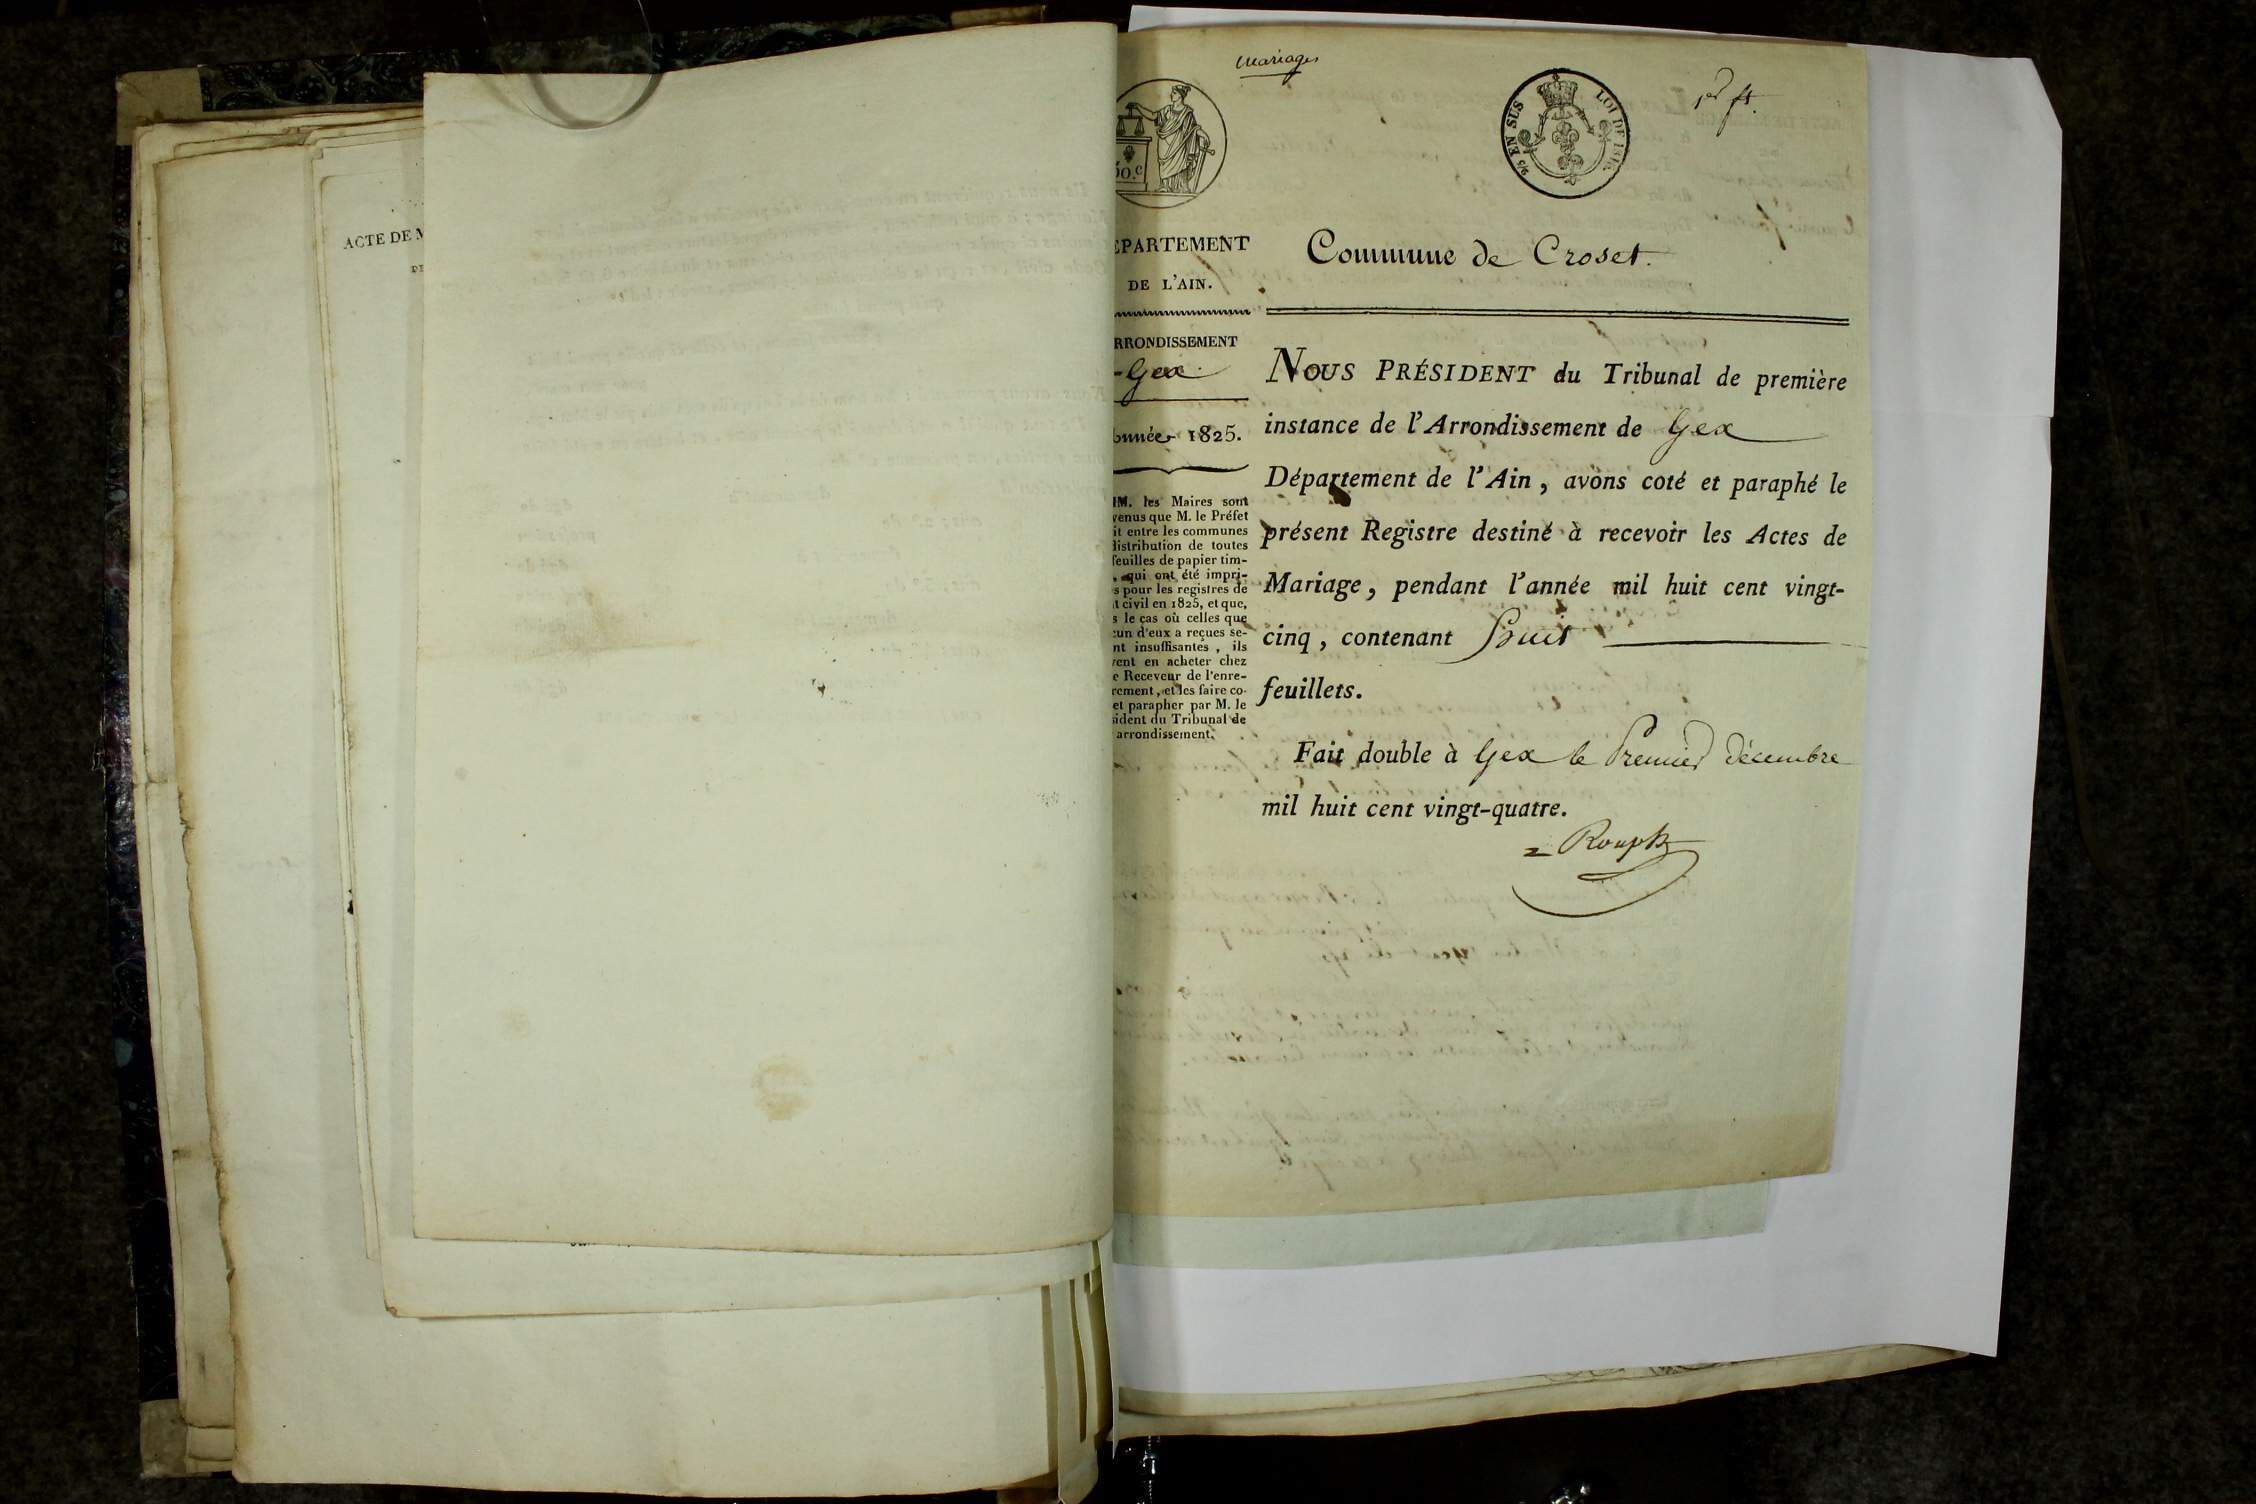 ACTE DE M
DE
Mariages
50.c
9/5 EN SUS LOI DE 1816
1er ft.
ÉPARTEMENT
DE L'AIN.
RRONDISSEMENT
Gex.
Année 1825.
MM. les Maires sont
venus que M. le Préfet
it entre les communes
distribution de toutes
feuilles de papier tim-
, qui ont été impri-
s pour les registres de
t civil en 1825, et que,
s le cas où celles que
cun d'eux a reçues se-
nt insuffisantes, ils
vent en acheter chez
e Receveur de l'enre-
rement, et les faire co-
et parapher par M. le
sident du Tribunal de
arrondissement.
Commune de Croset.
NOUS PRÉSIDENT du Tribunal de première
instance de l'Arrondissement de Gex
Département de l'Ain, avons coté et paraphé le
présent Registre destiné à recevoir les Actes de
Mariage, pendant l'année mil huit cent vingt-
cinq, contenant huit
feuillets.
Fait double à Gex le Premier décembre
mil huit cent vingt-quatre.